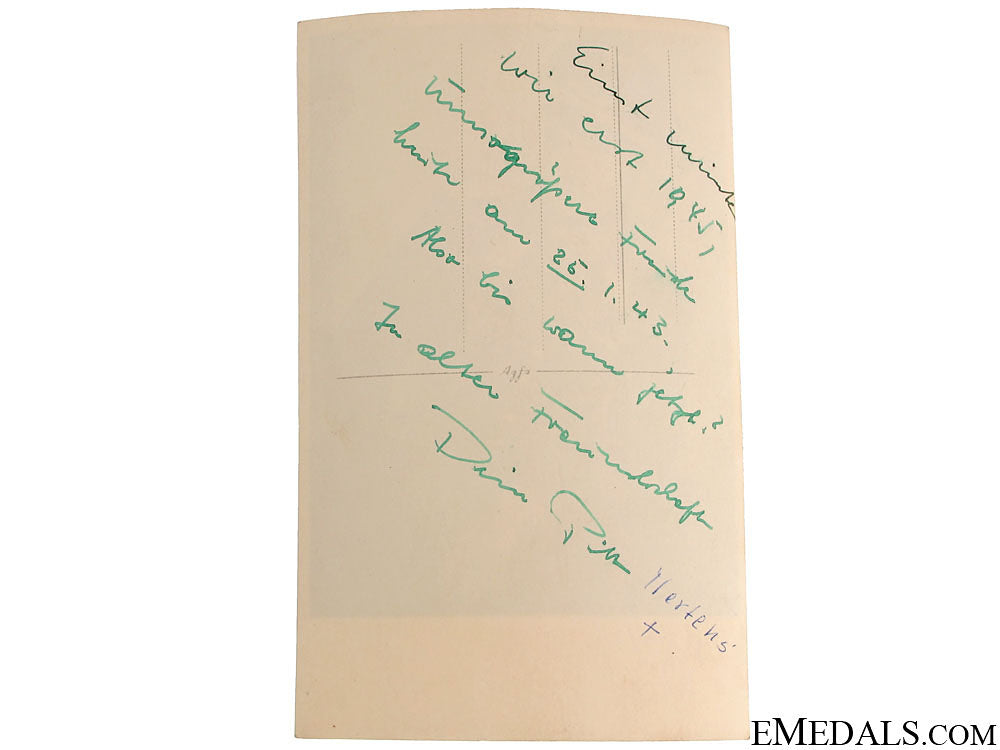 Einst
wir erst 1945,
Umso größere Freude
heute am 25.1.43.
Also bis wann jetzt?
In alter Freundschaft
Dein Pitt
Mertens
+
Agfa
EMEDALS.COM